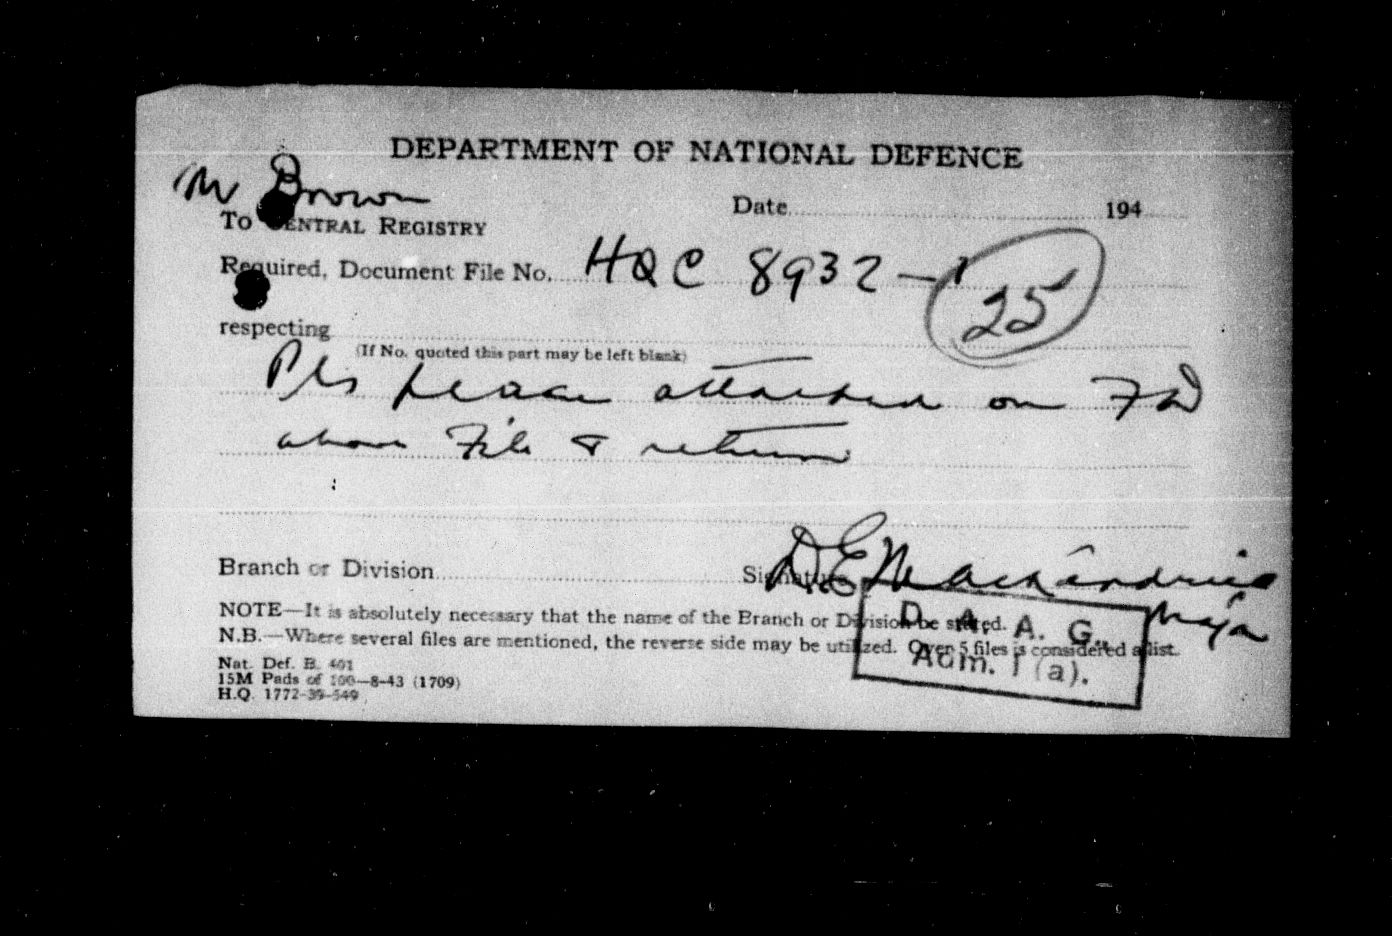 DEPARTMENT OF NATIONAL DEFENCE
Mr Brown
Date 194
To CENTRAL REGISTRY
Required, Document File No. HQC 8932-1
25
respecting
(If No. quoted this part may be left blank)
Pls place attached on
above File & return
Branch or Division Signature D E Mackendrick
Major
NOTE—It is absolutely necessary that the name of the Branch or Division be stated.
D. A. A. G.
N.B.—Where several files are mentioned, the reverse side may be utilized. Over 5 files is considered a list.
Adm. 1 (a).
Nat. Def. B. 401
15M Pads of 100—8-43 (1709)
H.Q. 1772-39-549